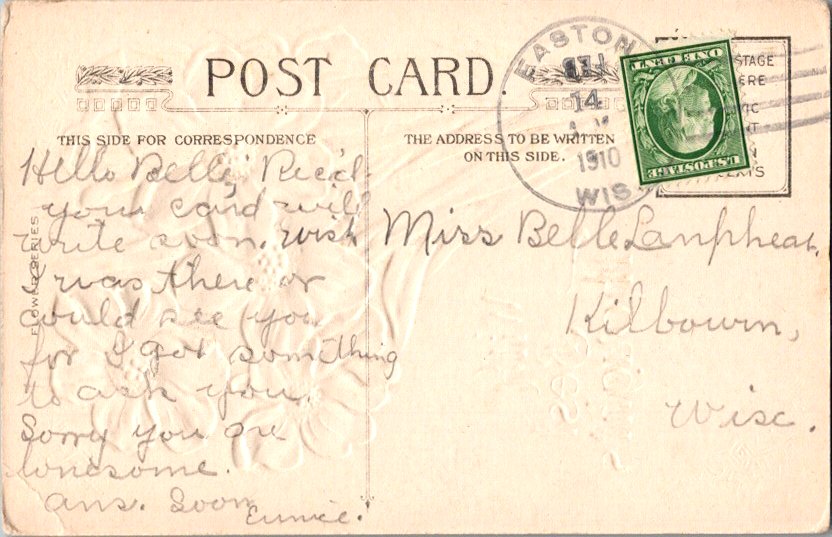 POST CARD.
THIS SIDE FOR CORRESPONDENCE
THE ADDRESS TO BE WRITTEN
ON THIS SIDE.
EASTON
14
1910
WIS
ONE CENT
U.S. POSTAGE
STAGE
ERE
FLOWER SERIES
Hello Belle, Rec'd
your card will
write soon. wish
I was there or
could see you
for I got something
to ask you.
Sorry you are
lonesome.
ans. Soon
Eunice.
Miss Belle Lanphear,
Kilbourn,
Wisc.